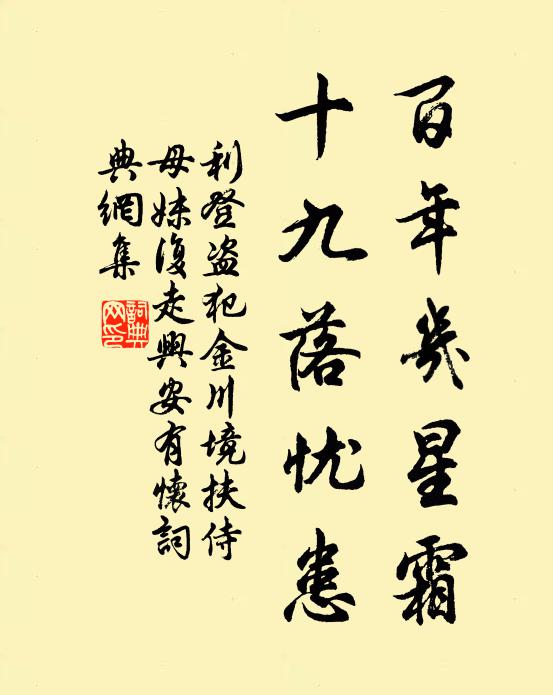 百年幾星霜
十九落忧患
利登盗犯金川境扶侍
母妹復走興安有懷詞
典網集
詞典網印